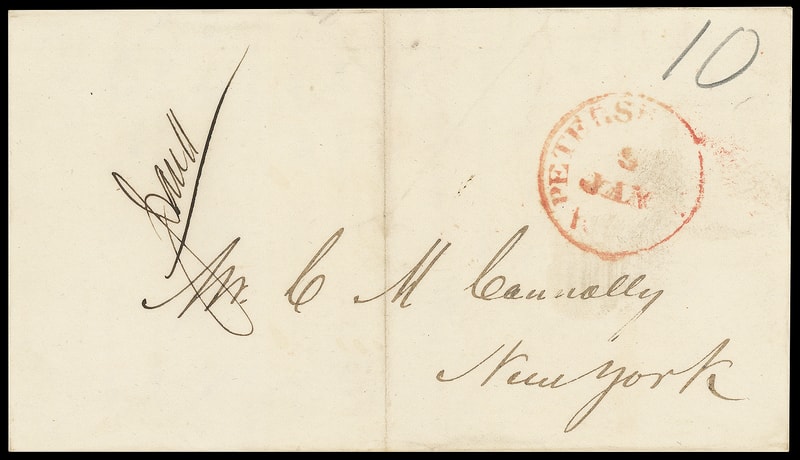 10
PETERSB
8
JAN
Mr. C M Connolly
New York